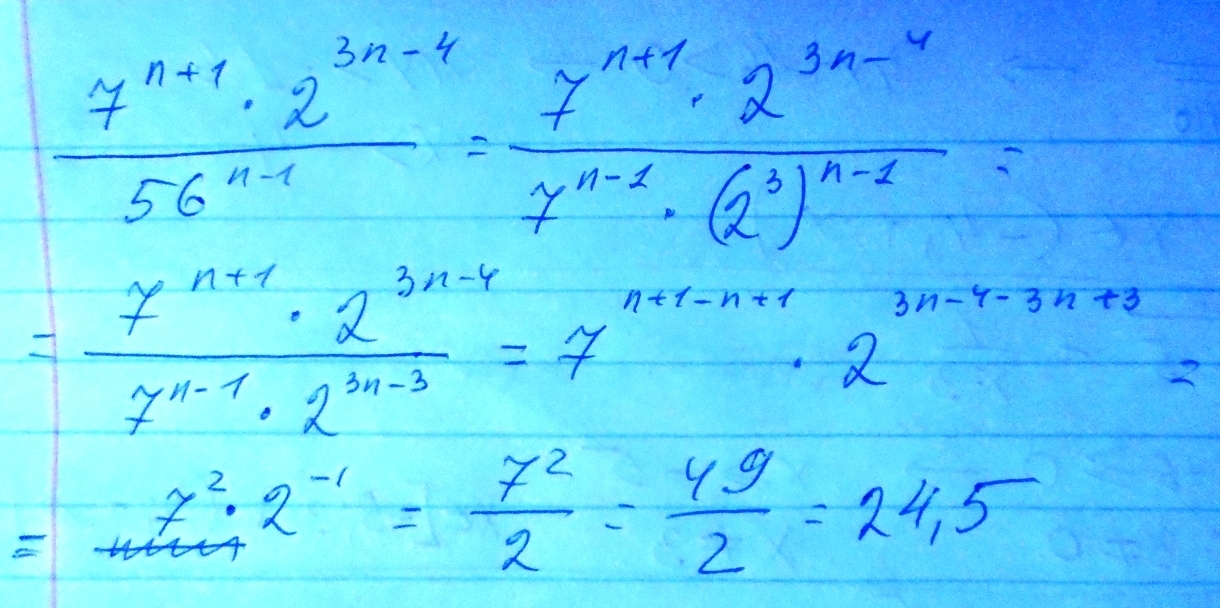 7^(n+1) · 2^(3n-4) / 56^(n-1) = 7^(n+1) · 2^(3n-4) / 7^(n-1) · (2^3)^(n-1) =
= 7^(n+1) · 2^(3n-4) / 7^(n-1) · 2^(3n-3) = 7^(n+1-n+1) · 2^(3n-4-3n+3) =
= 7^2 · 2^(-1) = 7^2 / 2 = 49 / 2 = 24,5